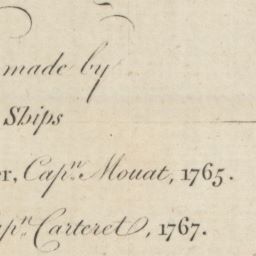 made by
Ships
er, Capⁿ. Mouat, 1765.
apⁿ. Carteret, 1767.